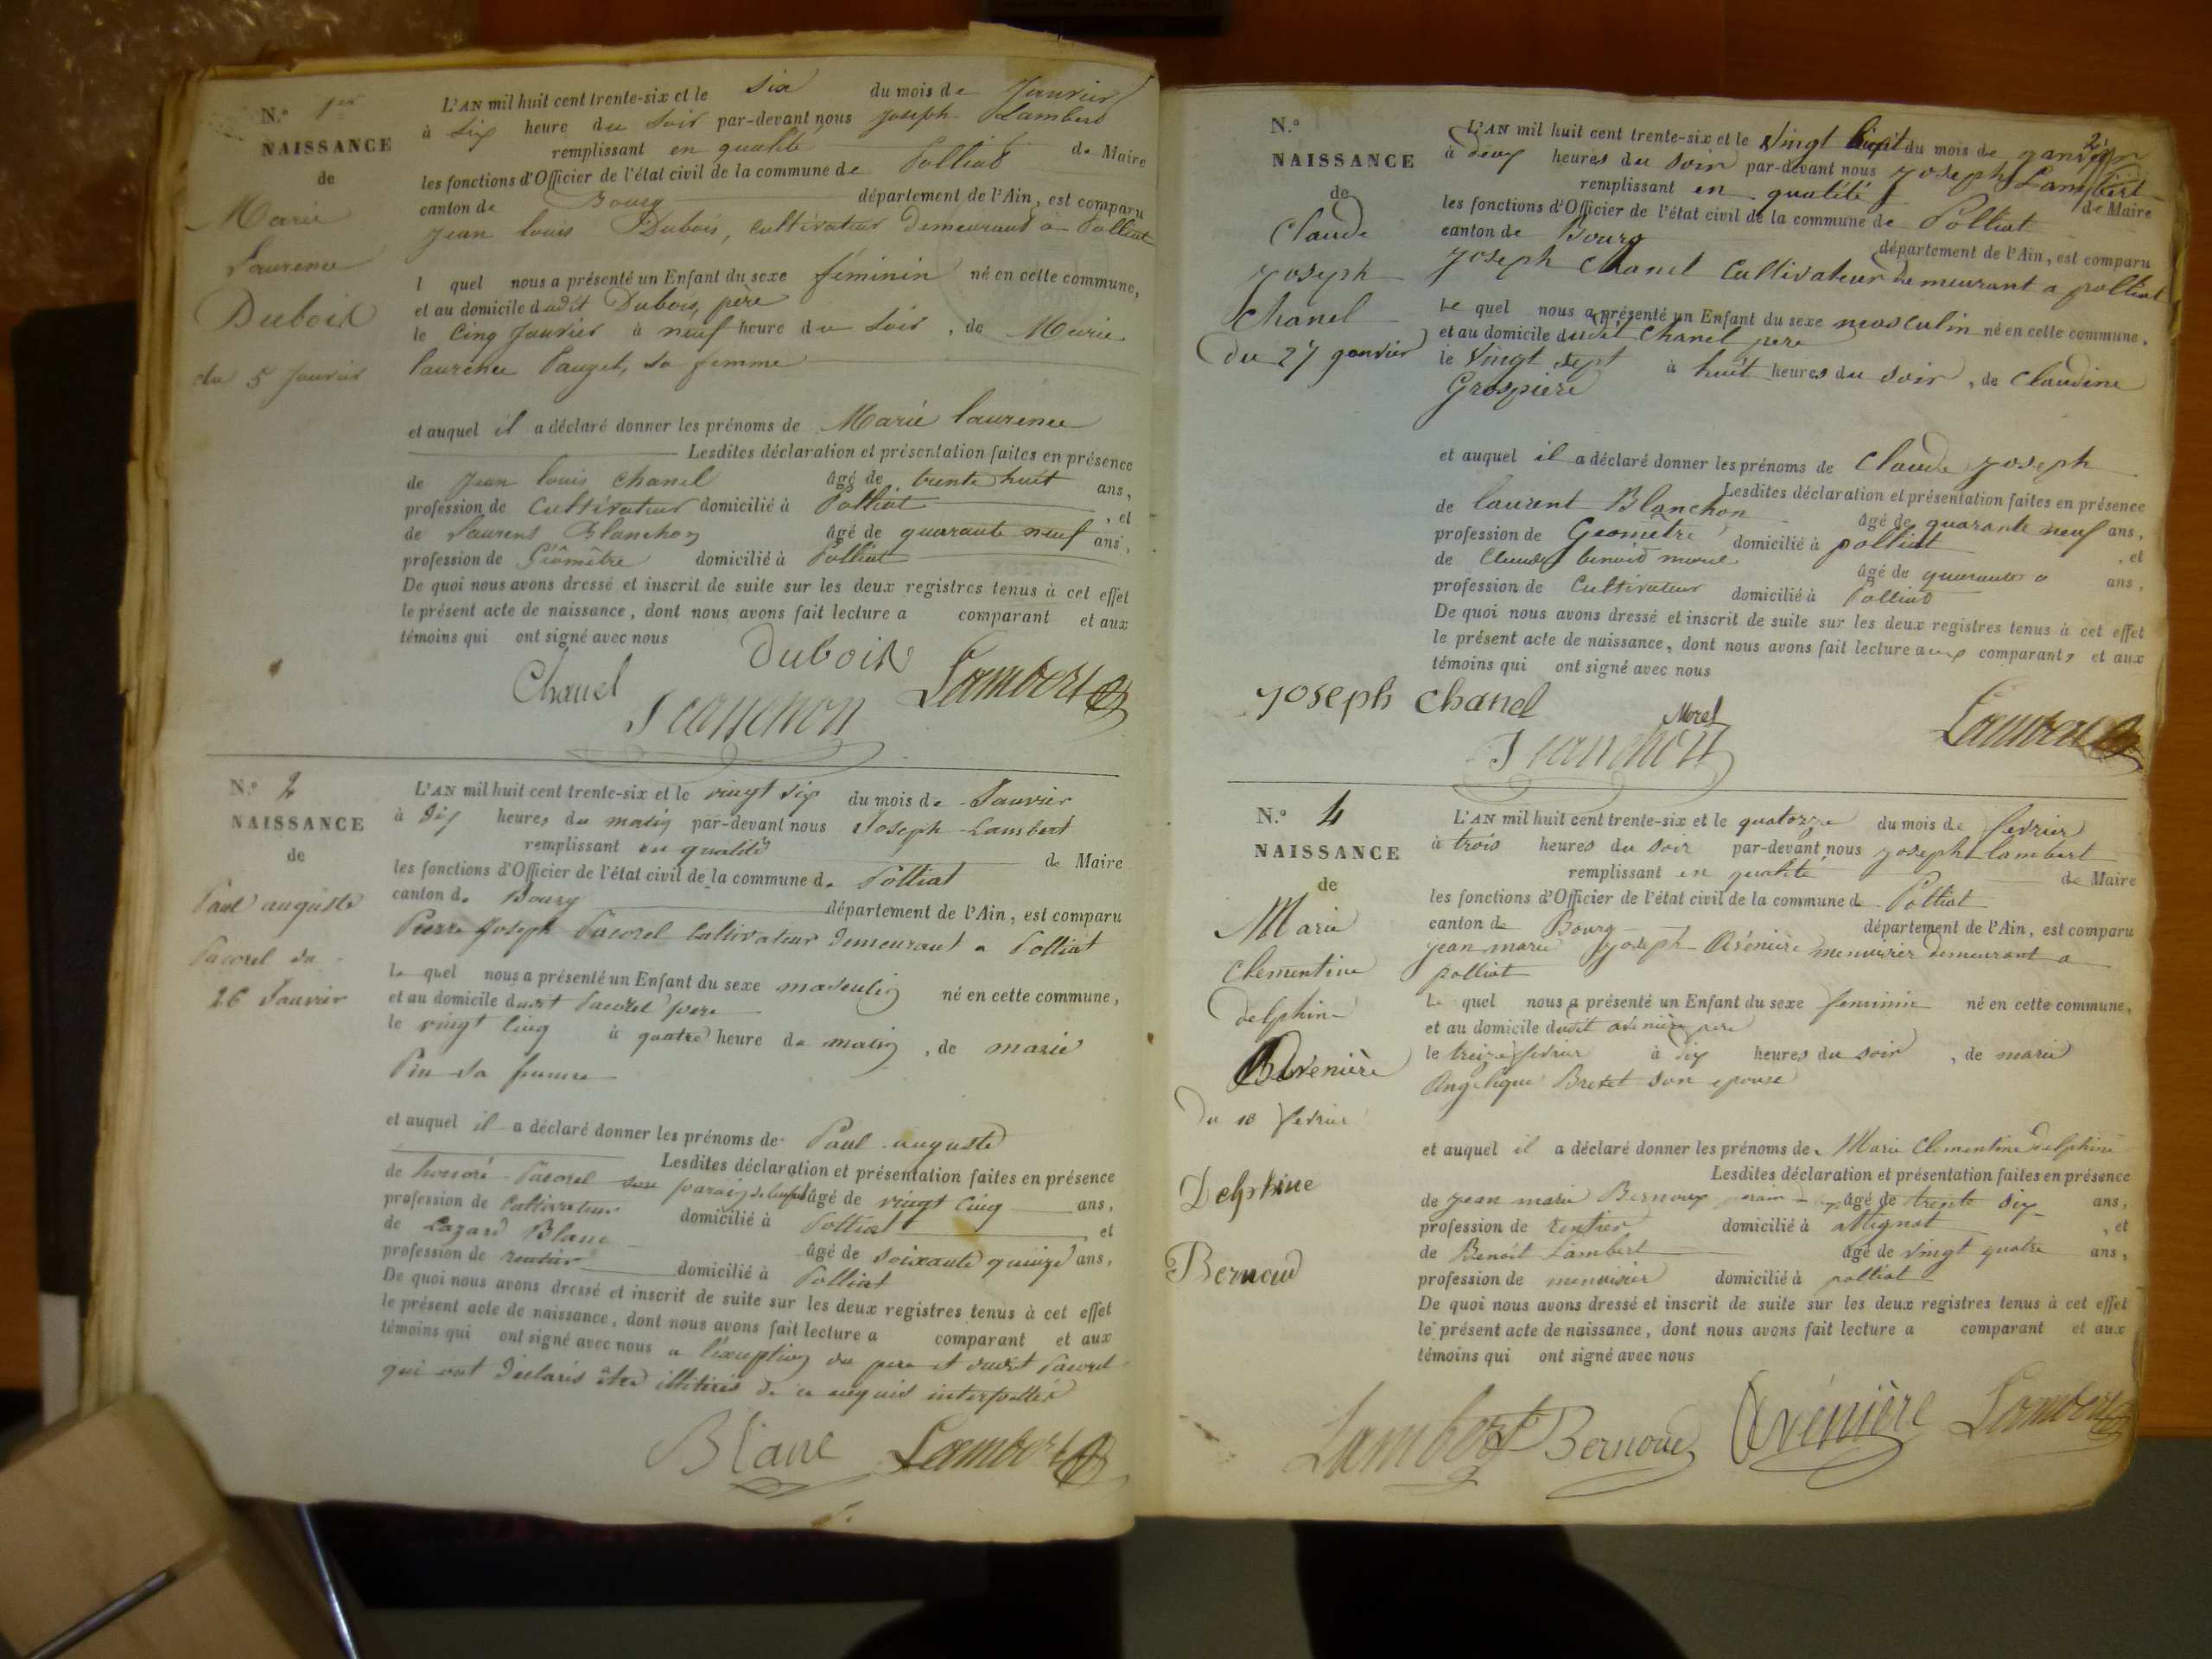 N.° 1er
NAISSANCE
de
Marie
Laurence
Dubois
du 5 Janvier
L'AN mil huit cent trente-six et le six du mois de Janvier
à six heure du soir par-devant nous Joseph Lambert
remplissant en qualité de Maire
les fonctions d'Officier de l'état civil de la commune de Polliat
canton de Bourg département de l'Ain, est comparu
Jean louis Dubois, cultivateur demeurant à Polliat
l quel nous a présenté un Enfant du sexe féminin né en cette commune,
et au domicile dudit Dubois, père
le Cinq Janvier à neuf heure du soir, de Marie
laurence Pauget, sa femme
et auquel il a déclaré donner les prénoms de Marie laurence
Lesdites déclaration et présentation faites en présence
de Jean louis Chanel âgé de trente huit ans,
profession de Cultivateur domicilié à Polliat, et
de Laurent Blanchon âgé de quarante neuf ans,
profession de Géomêtre domicilié à Polliat
De quoi nous avons dressé et inscrit de suite sur les deux registres tenus à cet effet
le présent acte de naissance, dont nous avons fait lecture a comparant et aux
témoins qui ont signé avec nous
Dubois
Chanel Lambert
Blanchon
N.° 2
NAISSANCE
de
Paul auguste
Pacorel du
26 Janvier
L'AN mil huit cent trente-six et le vingt six du mois de Janvier
à dix heures du matin par-devant nous Joseph Lambert
remplissant en qualité de Maire
les fonctions d'Officier de l'état civil de la commune de Polliat
canton de Bourg département de l'Ain, est comparu
Pierre Joseph Pacorel Cultivateur demeurant a Polliat
le quel nous a présenté un Enfant du sexe masculin né en cette commune,
et au domicile dudit Pacorel pere
le vingt cinq à quatre heure du matin, de marie
Pin sa femme
et auquel il a déclaré donner les prénoms de Paul auguste
Lesdites déclaration et présentation faites en présence
de honoré Pacorel son parain âgé de vingt cinq ans,
profession de Cultivateur domicilié à Polliat et
de Lazard Blanc âgé de soixante quinze ans,
profession de rentier domicilié à Polliat
De quoi nous avons dressé et inscrit de suite sur les deux registres tenus à cet effet
le présent acte de naissance, dont nous avons fait lecture a comparant et aux
témoins qui ont signé avec nous a l'exception du pere et dudit Pacorel
qui ont déclarés être illitirés de ce enquis interpellés
Blanc Lambert
2
N.°
NAISSANCE
de
Claude
Joseph
Chanel
Du 27 janvier
L'AN mil huit cent trente-six et le Vingt huit du mois de janvier
à deux heures du soir par-devant nous Joseph Lambert
remplissant en qualité de Maire
les fonctions d'Officier de l'état civil de la commune de Polliat
canton de Bourg département de l'Ain, est comparu
Joseph Chanel Cultivateur demeurant a polliat
Le quel nous a présenté un Enfant du sexe masculin né en cette commune,
et au domicile dudit Chanel pere
le Vingt sept à huit heures du soir, de Claudine
Grospiere
et auquel il a déclaré donner les prénoms de Claude Joseph
Lesdites déclaration et présentation faites en présence
de laurent Blanchon âgé de quarante neuf ans,
profession de Geomètre domicilié à polliat, et
de Claude benoid morel âgé de quarante ans,
profession de Cultivateur domicilié à Polliat
De quoi nous avons dressé et inscrit de suite sur les deux registres tenus à cet effet
le présent acte de naissance, dont nous avons fait lecture aux comparants et aux
témoins qui ont signé avec nous
Joseph Chanel Morel
Blanchon Lambert
N.° 4
NAISSANCE
de
Marie
Clementine
delphine
Avenière
Du 13 fevrier
Delphine
Bernoud
L'AN mil huit cent trente-six et le quatorze du mois de fevrier
à trois heures du soir par-devant nous Joseph lambert
remplissant en qualité de Maire
les fonctions d'Officier de l'état civil de la commune de Polliat
canton de Bourg département de l'Ain, est comparu
jean marie Joseph Avénière menuisier demeurant a
polliat
Le quel nous a présenté un Enfant du sexe feminin né en cette commune,
et au domicile dudit avenière pere
le treize fevrier à dix heures du soir, de marie
Angelique Brevet son epouse
et auquel il a déclaré donner les prénoms de Marie Clementine delphine
Lesdites déclaration et présentation faites en présence
de jean marie Bernoux parain âgé de trente six ans,
profession de rentier domicilié à attignat, et
de Benoit Lambert âgé de vingt quatre ans,
profession de menuisier domicilié à polliat
De quoi nous avons dressé et inscrit de suite sur les deux registres tenus à cet effet
le présent acte de naissance, dont nous avons fait lecture a comparant et aux
témoins qui ont signé avec nous
Lambert Bernoud Avénière Lambert